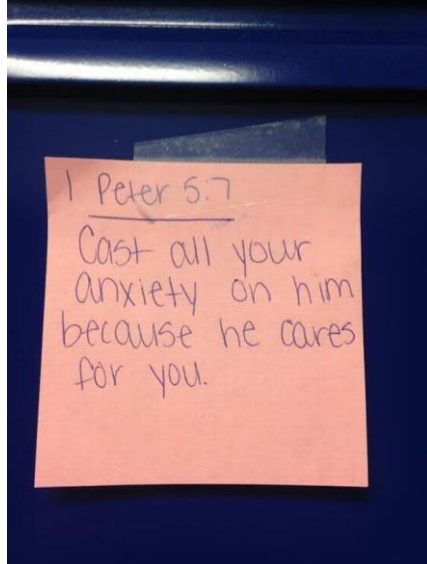 1 Peter 5:7
Cast all your
anxiety on him
because he cares
for you.